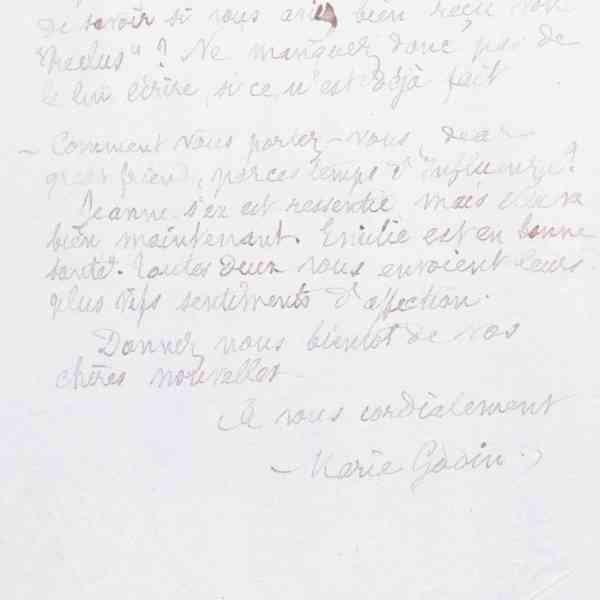 de savoir si vous avez bien reçu votre
Reclus" ? Ne manquez donc pas de
le lui écrire, si ce n'est déjà fait
– Comment vous portez-vous, dear
great friend, par ces temps d'influenza ?
Jeanne s'en est ressentie, mais elle va
bien maintenant. Emilie est en bonne
santé. Toutes deux vous envoient leurs
plus vifs sentiments d'affection.
Donnez nous bientôt de vos
chères nouvelles
A vous cordialement
– Marie